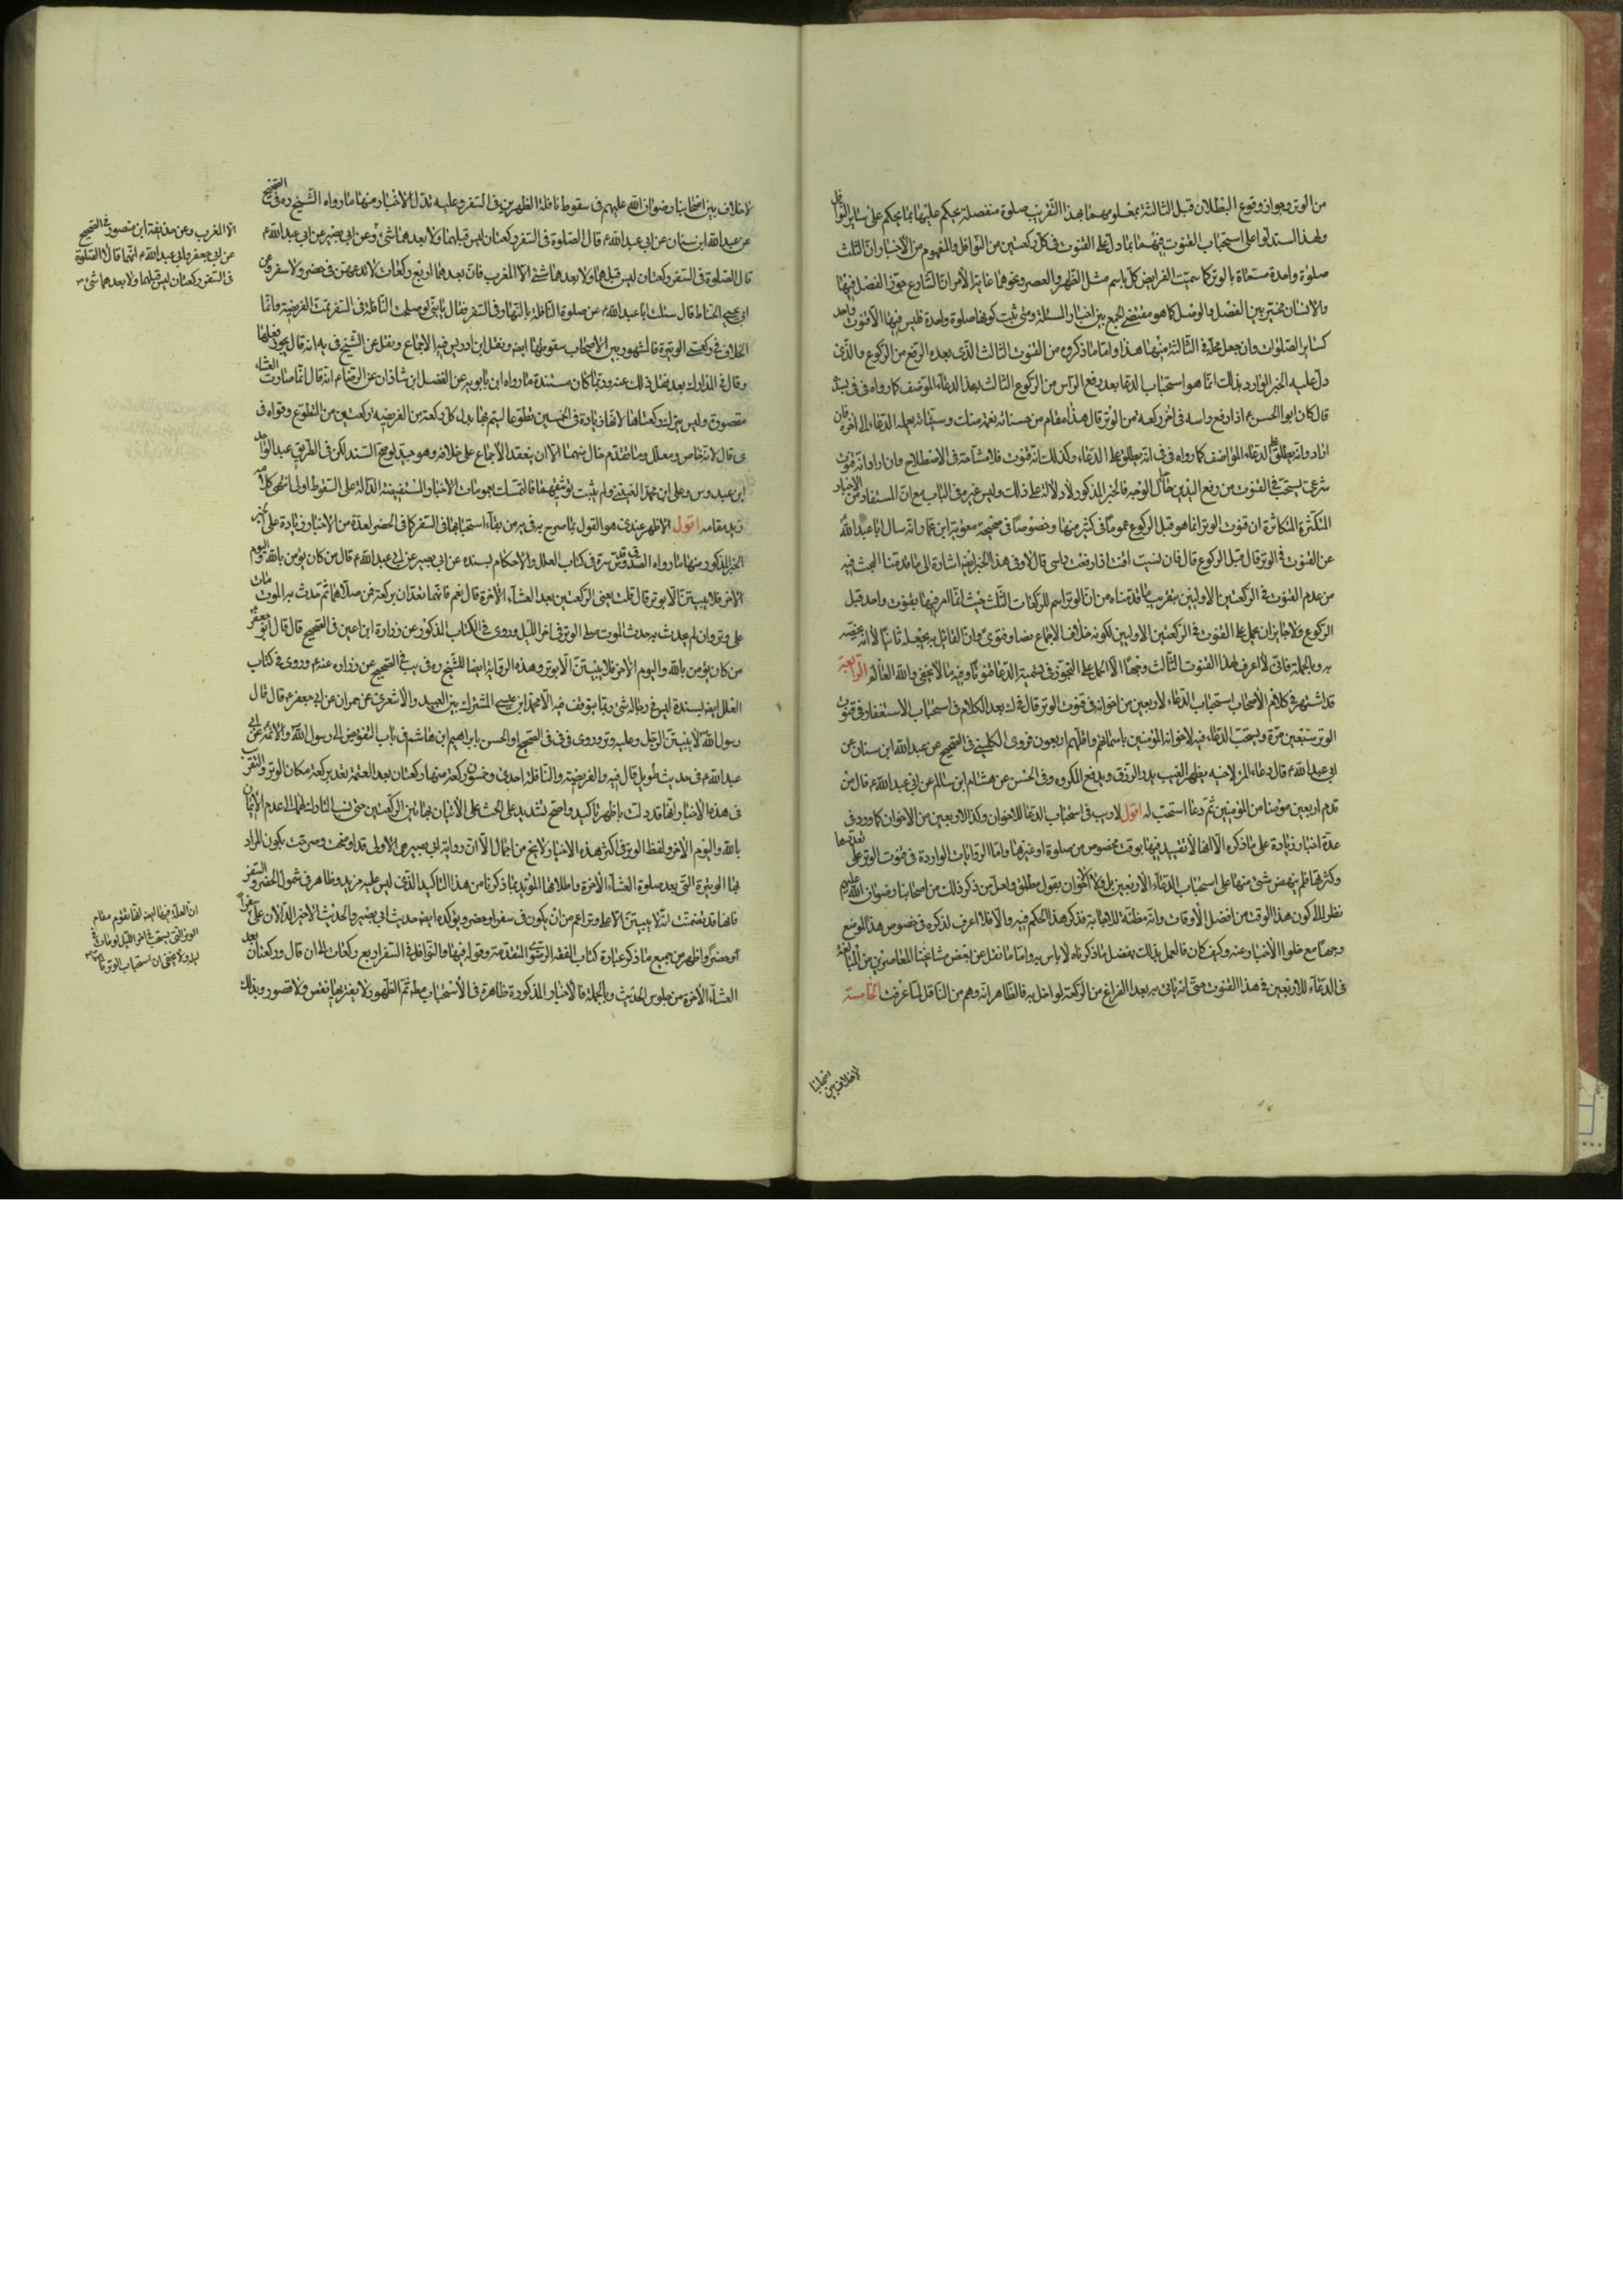 من الوتر وجواز وقوع البطلان قبل الثالثة بمعلومهما بهذا التقريب صلوة منفصلة يحكم عليها بما يحكم على ساير النوافل
ولهذا استدلوا على استحباب القنوت فيهما بما دل على القنوت في كل ركعتين من النوافل والمفهوم من الأخبار ان الثلث
صلوة واحدة مسماة بالوتر كما سميت الفرايض كل باسم مثل الظهر والعصر ونحوهما غاية الأمر ان الشارع جوز الفصل فيها
والانسان مخير بين الفصل والوصل كما هو مقتضى الجمع بين اخبار المسئلة ومتى ثبت كونها صلوة واحدة فليس فيها الا قنوت واحد
كساير الصلوات وان جعل محله في الثالثة منها هذا واما ما ذكروه من القنوت الثالث الذي بعد الرفع من الركوع والذي
دل عليه الخبر الوارد بذلك انما هو استحباب الدعا بعد رفع الرأس من الركوع الثالث بهذا الدعاء الموصف كما رواه في في بسنده
قال كان ابو الحسن ع اذا رفع راسه في اخر ركعة من الوتر قال هذا مقام من حسناته نعمة منك وسيئاته بعمله الدعاء الى اخره فان
اراد وانه يطلق على الدعاء المواصف كما رواه في في انه يطلق على الدعاء وكذلك انه قنوت فلا مشاحة في الاصطلاح وان اراد انه قنوت
شرعي يستحب في القنوت من رفع اليدين حيال الوجه فالخبر المذكور لا دلالة على ذلك وليس غيره في الباب مع ان المستفاد من الاخبار
المتكثرة المتكاثرة ان قنوت الوتر انما هو قبل الركوع عموما في كثير منها وخصوصا في صحيحة معوية ابن عمار انه سال ابا عبد الله
عن القنوت في الوتر قال قبل الركوع قال فان نسيت اقنت اذا رفعت راسي قال لا وفي هذا الخبر ايضا اشارة الى ما قدمنا البحث فيه
من عدم القنوت في الركعتين الاوليين بتقريب ما قدمناه من ان الوتر اسم للركعات الثلث حيث انه امر فيها بقنوت واحد قبل
الركوع ولا جايز ان يحمل على القنوت في الركعتين الاوليين لكونه خلاف الاجماع نصا وفتوى وان القائل به يجعله ثانيا لا انه يخصه
به وبالجملة فاني لا اعرف لهذا القنوت الثالث وجها الا الحمل على التجوز في تسمية الدعا قنوتا وفيه ما لا يخفى والله العالم الرابعة
قد اشتهر في كلام الأصحاب استحباب الدعاء لاربعين من اخوانه في قنوت الوتر قال في ك بعد الكلام في استحباب الاستغفار في قنوت
الوتر سبعين مرة ويستحب الدعاء فيه لاخوانه المؤمنين باسمائهم واقلهم اربعون فروى الكليني في الصحيح عن عبد الله ابن سنان عن
ابي عبد الله ع قال دعاء المرء لاخيه بظهر الغيب يدر الرزق ويدفع المكروه وفي الحسن عن هشام ابن سالم عن ابي عبد الله ع قال من
قدم اربعين مؤمنا من المؤمنين ثم دعا استجيب له اقول لا ريب في استحباب الدعا للاخوان وكذا لاربعين من الاخوان كما ورد في
عدة اخبار زيادة على ما ذكره الا انها لا تقييد فيها بوقت مخصوص من صلوة او غيرها واما الروايات الواردة في قنوت الوتر على تعددها
وكثرتها فلم ينهض شئ منها على استحباب الدعاء لاربعين بل ولا الاخوان بقول مطلق ولعل من ذكر ذلك من اصحابنا رضوان الله عليهم
نظر الى كون هذا الوقت من افضل الأوقات وانه مظنة للاجابة فذكر هذا الحكم فيه والا فلا اعرف لذكره في خصوص هذا الموضع
وجها مع خلو الأخبار عنه وكيف كان فالعمل بذلك بفضل ما ذكرناه لا باس به واما ما نقل عن بعض مشايخنا المعاصرين من المبالغة
في الدعاء للاربعين في هذا القنوت حتى انه ياتي به بعد الفراغ من الركعة لو اخل به فالظاهر انه وهم من الناقل لما عرفت الخامسة
لا خلاف بين اصحابنا
لا خلاف بين اصحابنا رضوان الله عليهم في سقوط نافلة الظهرين في السفر وعليه تدل الاخبار منها ما رواه الشيخ ره في الصحيح
عن عبد الله ابن سنان عن ابي عبد الله ع قال الصلوة في السفر ركعتان ليس قبلهما ولا بعدهما شئ وعن ابي بصير عن ابي عبد الله ع
قال الصلوة في السفر ركعتان ليس قبلهما ولا بعدهما شئ الا المغرب فان بعدها اربع ركعات لا تدعهن في حضر ولا سفر وعن
ابي يحيى الحناط قال سئلت ابا عبد الله ع عن صلوة النافلة بالنهار في السفر فقال يا بني لو صلحت النافلة في السفر تمت الفريضة وانما
الخلاف في ركعتي الوتيرة فالمشهور بين الاصحاب سقوطها ايضا ونقل ابن ادريس فيه الاجماع ونقل عن الشيخ في يه انه قال يجوز فعلها
وقال في المدارك بعد نقل ذلك عنه وربما كان مستنده ما رواه ابن بابويه عن الفضل ابن شاذان عن الرضا ع انه قال انما صارت العشاء
مقصورة وليس يترك ركعتاها لانها زيادة في الخمسين تطوعا ليتم بهما بدل كل ركعة من الفريضة ركعتين من التطوع وقواه في
ى قال لانه خاص ومعلل وما تقدم خال منهما الا ان ينعقد الأجماع على خلافه وهو جيد لو صح السند لكن في الطريق عبد الواحد
ابن عبدوس وعلى ابن محمد القتيبي ولم يثبت توثيقهما فالتمسك بعمومات الاخبار المستفيضة الدالة على السقوط اولى انتهى كلامه
زيد مقامه اقول الاظهر عندي هو القول بما صرح به في يه من بقاء استحبابها في السفر كما في الحضر لعدة من الاخبار زيادة على الخبر
المذكور منها ما رواه الصدوق قدس سره في كتاب العلل والاحكام بسنده عن ابي بصير عن ابي عبد الله ع قال من كان يؤمن بالله واليوم
الاخر فلا يبيتن الا بوتر قال قلت يعني الركعتين بعد العشاء الاخرة قال نعم فانهما تعدان بركعة فمن صلاهما ثم حدث به الموت مات
على وتر وان لم يحدث به حدث الموت صلى الوتر في اخر الليل وروى في الكتاب المذكور عن زرارة ابن اعين في الصحيح قال قال ابو جعفر
من كان يؤمن بالله واليوم الاخر فلا يبيتن الا بوتر وهذه الرواية ايضا للشيخ ره في يب في الصحيح عن زرارة عنه ع وروى في كتاب
العلل ايضا بسنده ليس في رجاله شئ ربما يتوقف فيه الا محمد ابن عيسى المشترك بين العبيدي والاشعري عن حمران عن ابي جعفر ع قال قال
رسول الله لا يبيتن الرجل وعليه وتر وروى في في في الصحيح او الحسن بابراهيم ابن هاشم في باب التفويض الى رسول الله والائمة عن ابي
عبد الله ع في حديث طويل قال فيه والفريضة والنافلة احدى وخمسون ركعة منها ركعتان بعد العتمة تعد بركعة مكان الوتر والتقريب
في هذه الاخبار انها قد دلت باظهر تاكيد واصح تشديد على الحث على الاتيان بهاتين الركعتين حتى نسب التارك لهما الى عدم الايمان
بالله واليوم الاخر ولفظ الوتر في اكثر هذه الاخبار لا يخ من اجمال الا ان رواية ابي بصير هي الاولى قد اوضحت وصرحت بكون المراد
بها الوتيرة التي بعد صلوة العشاء الأخرة واطلاقها المؤيد بما ذكرنا من هذا التاكيد الذي ليس عليه مزيد وظاهر في شمول الحضر والسفر
فانها قد تضمنت انه لا يبيتن الا على وتر اعم من ان يكون في سفر او حضر ويؤكده ايضا حديث ابي بصير والحديث الاخير الدالان على
او حضر واظهر من جميع ما ذكر عبارة كتاب الفقه الرضوي المتقدمة وقوله فيها والنوافل في السفر اربع ركعات الى ان قال وركعتان بعد
العشاء الأخرة من جلوس الحديث وبالجملة فالأخبار المذكورة ظاهرة في الأستحباب مطلقا تم الظهور لا يعتريها نقص ولا قصور وبذلك
الا المغرب وعن حذيفة ابن منصور في الصحيح
عن ابي جعفر وابي عبد الله ع انهما قالا الصلوة
في السفر ركعتان ليس قبلهما ولا بعدهما شئ
ان العلة فيها ايضا انها تقوم مقام
الوتر التي يستحب في اخر الليل لو مات في
ليله ولا يخفى ان استحباب الوتر